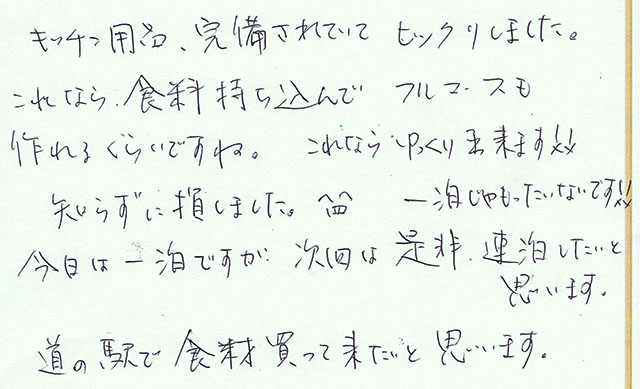 キッチン用品、完備されていて ビックリしました。
これなら、食料持ち込んで フルコースも
作れるくらいですね。 これなら ゆっくり出来ます!!
知らずに損しました。 一泊じゃもったいないです!!
今日は一泊ですが 次回は 是非、連泊したいと
思います。
道の駅で食材買って来たいと思います。